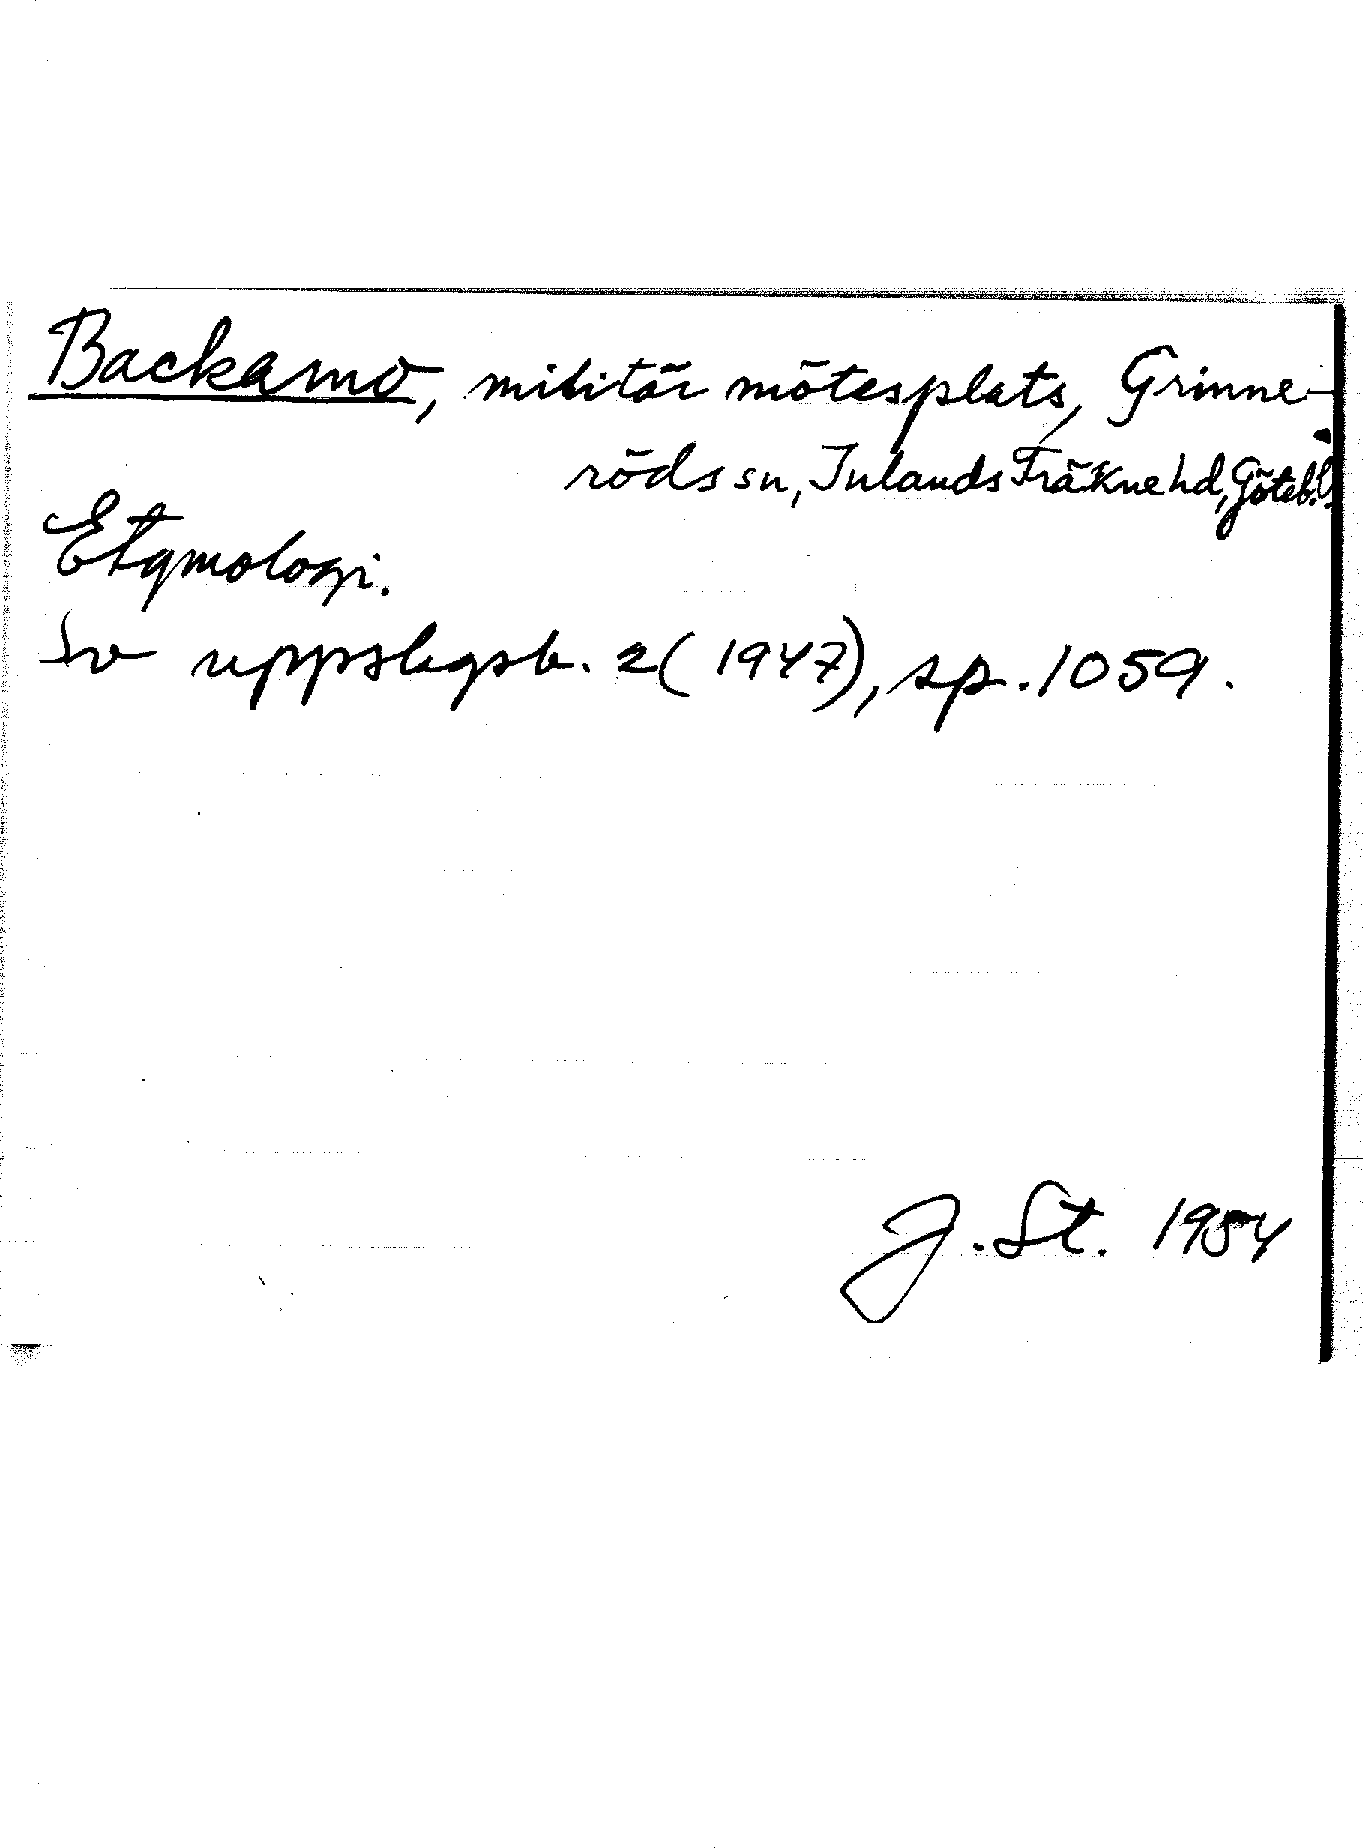 Backamo, militär mötesplats, Grinne-
röds sn, Inlands Fräkne hd, Göteb. l.
Etymologi.
Sv uppslagsb. 2 (1947), sp. 1059.
J. St. 1954